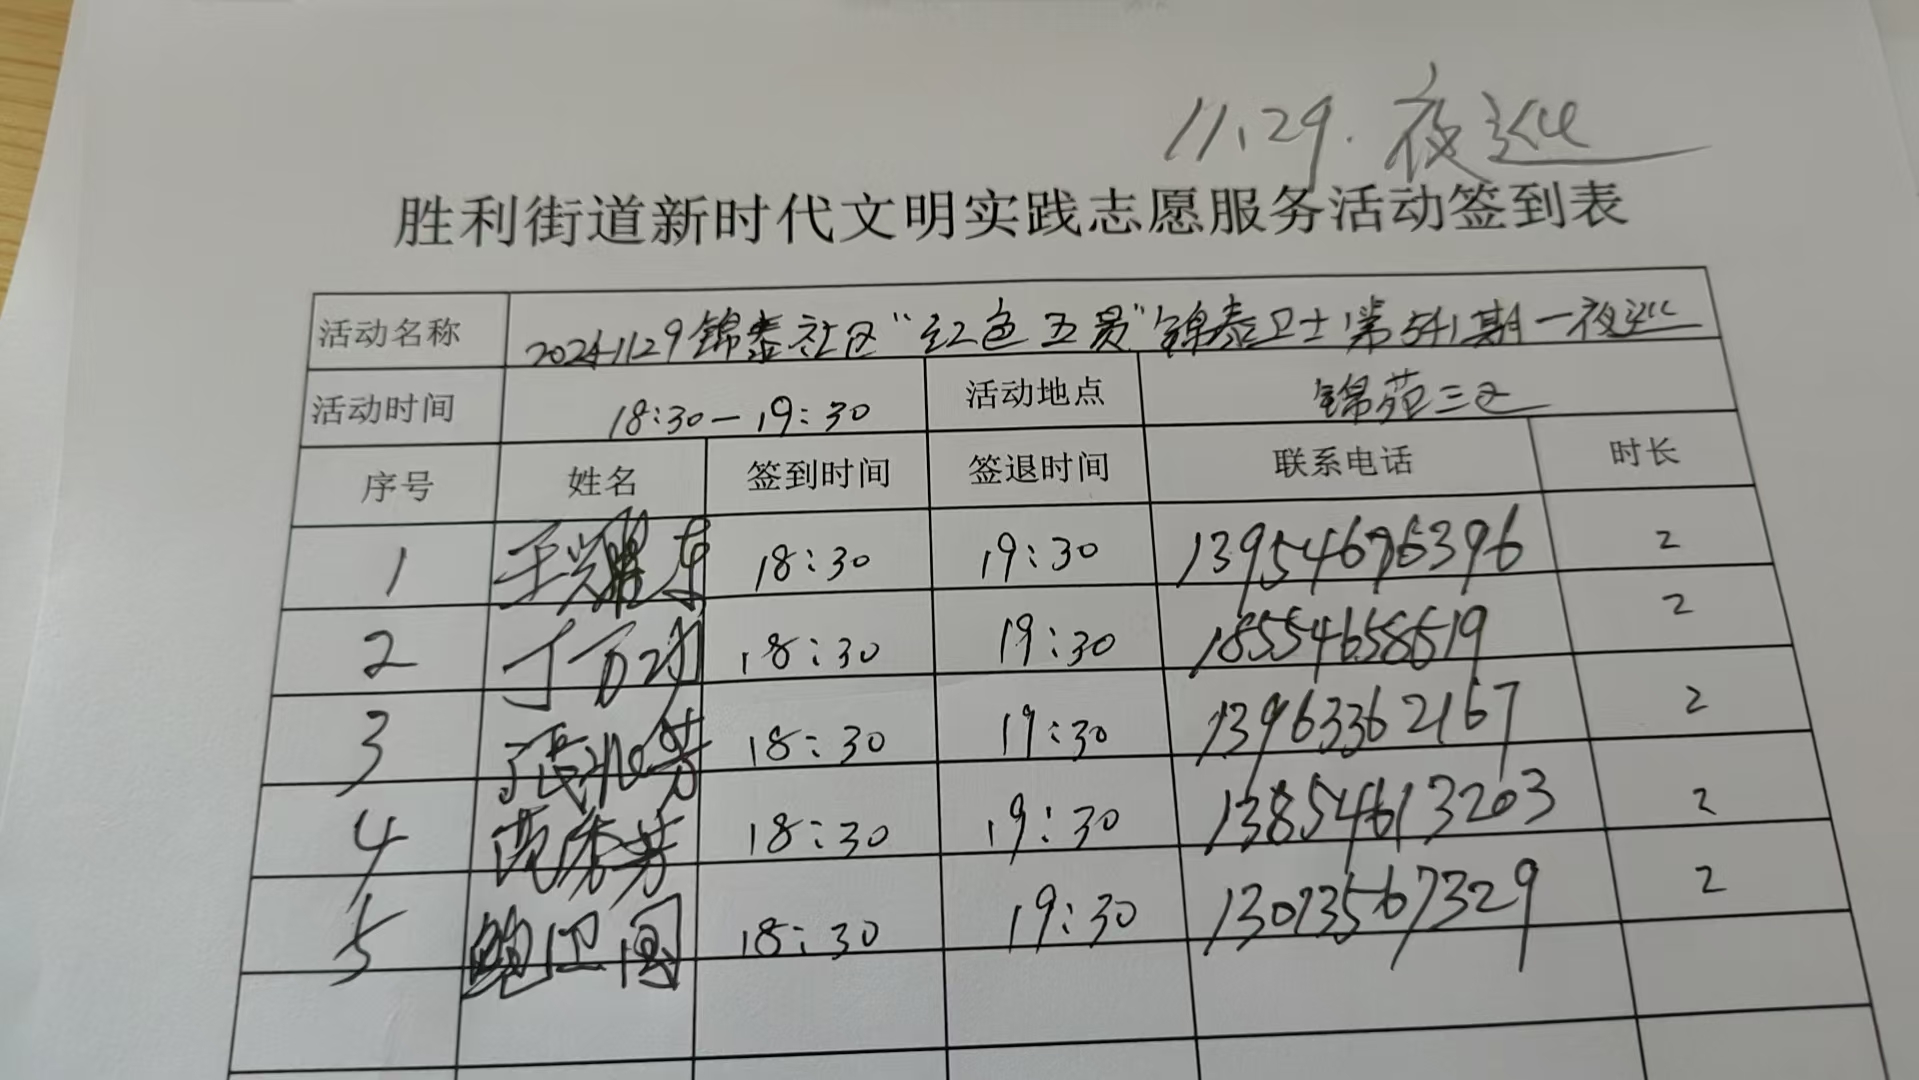 11.29.夜巡
胜利街道新时代文明实践志愿服务活动签到表
活动名称 20241129锦泰社区“红色五员”锦泰卫士第541期一夜巡
活动时间 18:30-19:30 活动地点 锦苑三区
序号 姓名 签到时间 签退时间 联系电话 时长
1 王耀东 18:30 19:30 13954676396 2
2 丁万 18:30 19:30 18554658519 2
3 张 芳 18:30 19:30 13963362167 2
4 秀芳 18:30 19:30 13854613203 2
5 鲍卫国 18:30 19:30 13013567329 2